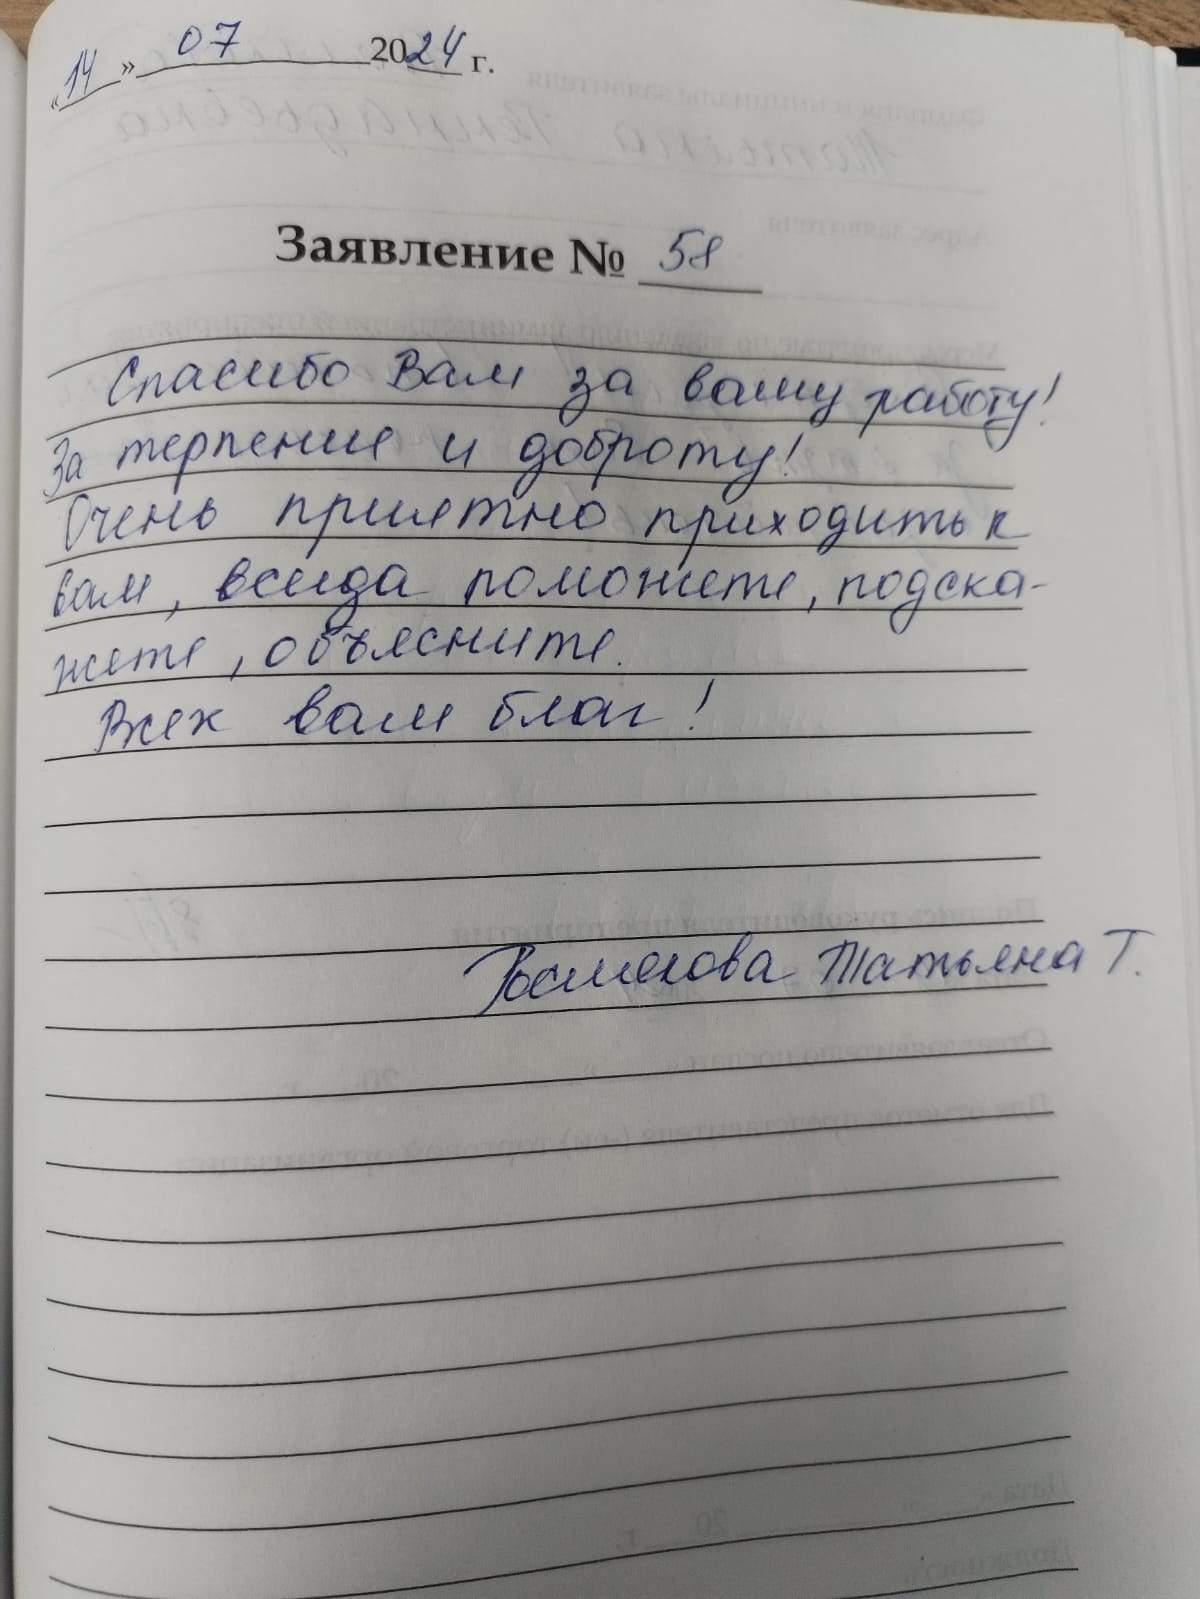 «14» 07 2024 г.
Заявление № 58
Спасибо Вам за вашу работу!
За терпение и доброту!
Очень приятно приходить к
вам, всегда поможете, подска-
жете, объясните.
Всех вам благ!
Татьяна Г.